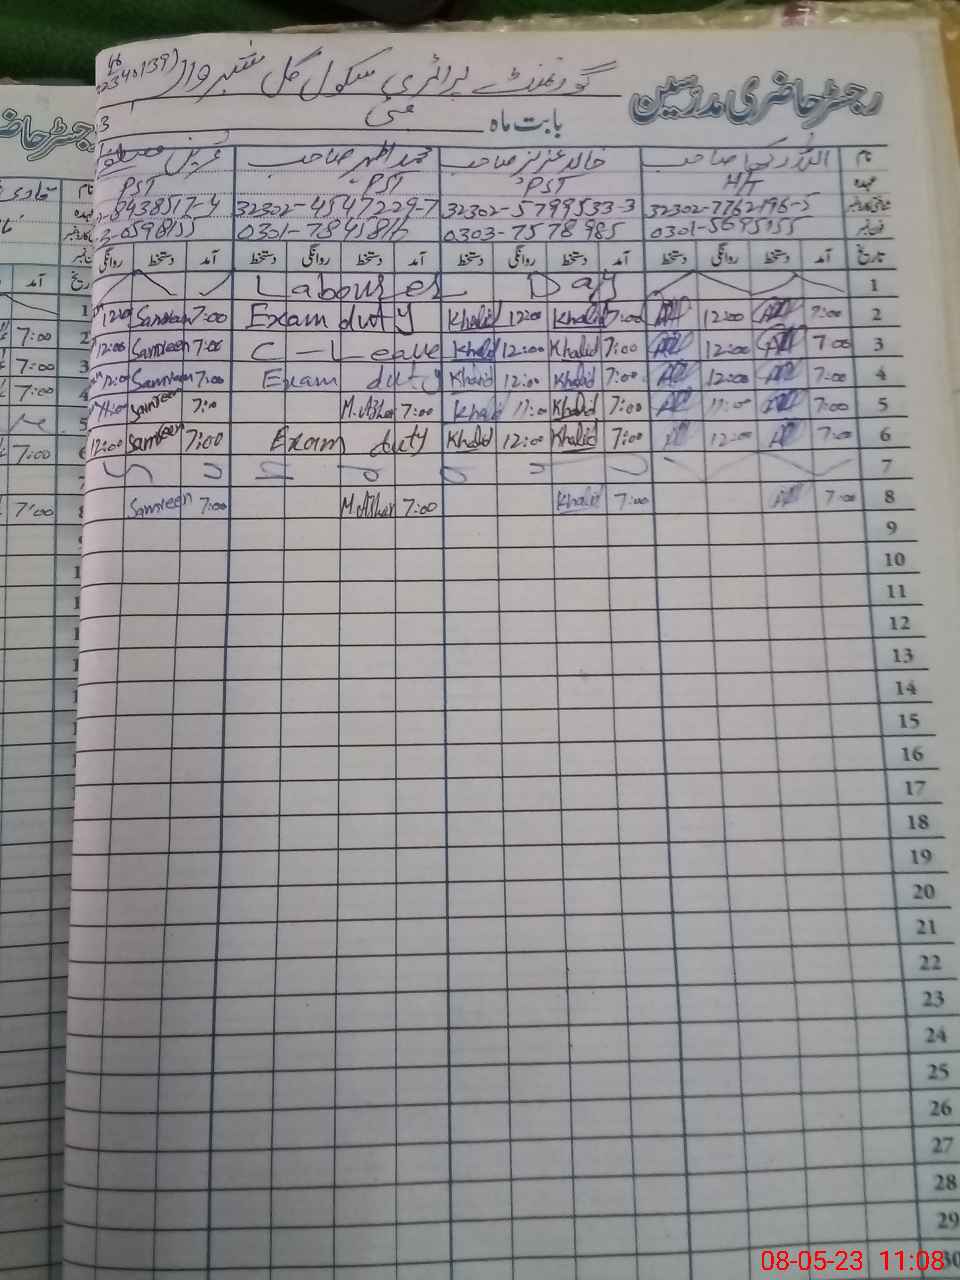 رجسٹر حاضری مدرسین
گورنمنٹ پرائمری سکول
بابت ماہ مئی
نام خالد عزیز صاحب محمد اظہر صاحب
عہدہ H/T PST PST PST
32302-7762196-5 32302-5799533-3 32302-4547229-7 8438517-4
0301-5695155 0303-7578985 0301-7845816 6598155
تاریخ آمد دستخط روانگی دستخط آمد دستخط روانگی دستخط آمد دستخط روانگی دستخط آمد دستخط روانگی
1 Labourer Day
2 7:00 12:00 7:00 Khalid 12:00 Khalid Exam duty 7:00 Samreen 12:00
3 7:00 12:00 7:00 Khalid 12:00 Khalid C-Leave 7:00 Samreen 12:00
4 7:00 12:00 7:00 Khalid 12:00 Khalid Exam duty 7:00 Samreen 12:00
5 7:00 11:00 7:00 Khalid 11:00 Khalid 7:00 M.Azhar 7:00 Samreen 11:00
6 7:00 12:00 7:00 Khalid 12:00 Khalid Exam duty 7:00 Samreen 12:00
7
8 7:00 7:00 Khalid 7:00 M.Azhar 7:00 Samreen
9
10
11
12
13
14
15
16
17
18
19
20
21
22
23
24
25
26
27
28
29
30
رجسٹر حاضری
نام
آمد
7:00
7:00
7:00
7:00
7:00
08-05-23 11:08